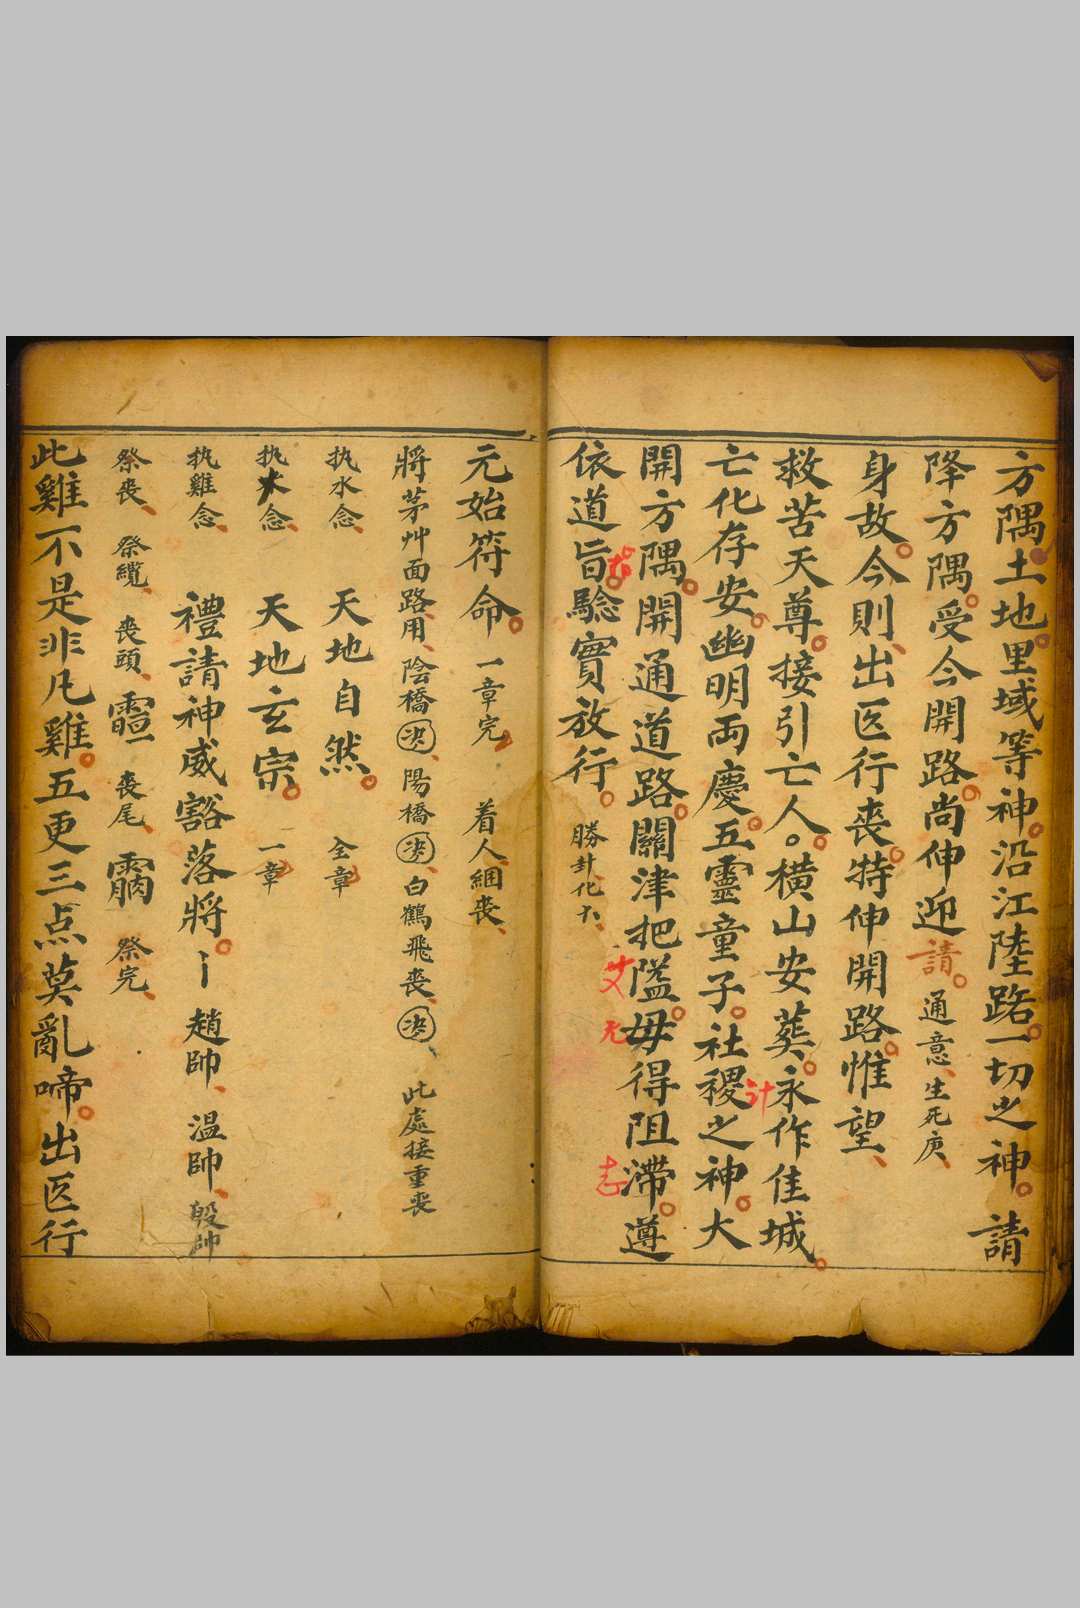 方隅。土地。里域等神。沿江陸路。一切之神。請
降方隅。受今開路。尚伸迎請。通意、生死庚、
身故。今則、出医行喪。特伸開路。惟望、
救苦天尊。接引亡人。橫山安葬。永作佳城。
亡化存安。幽明両慶。五靈童子。社稷之神。大
開方隅。開通道路。關津把隘。毋得阻滯。遵
依道旨。驗實放行。勝封化
元始符命。一章完 着人綑喪、
將茅艸面路用、陰橋決、陽橋決、白鶴飛喪、決、此處接重喪
执水念、天地自然。全章
执火念、天地玄宗。一章
执雞念、禮請神威豁落將。趙帥、溫帥、殷帥
祭喪、祭纜、喪頭、喪尾、祭完、
此雞不是非凡雞。五更三点莫亂啼。出医行